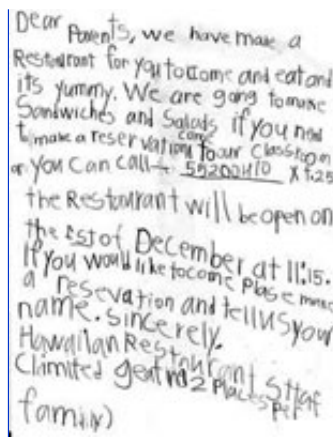 Dear Parents, we have make a
Restaurant for you to come and eat and
its yummy. We are gong to make
Sandwiches and Salads if you need
to make a reservation can to our Classroom
or you Can call → 55200410 X 125
the Restaurant will be open on
the 1st of December at 11:15.
If you would like to come Plase make
a resevation and tell us your
name. sincerely.
Hawaiian Restaurant Staf
Climited 2 Places Per
family)